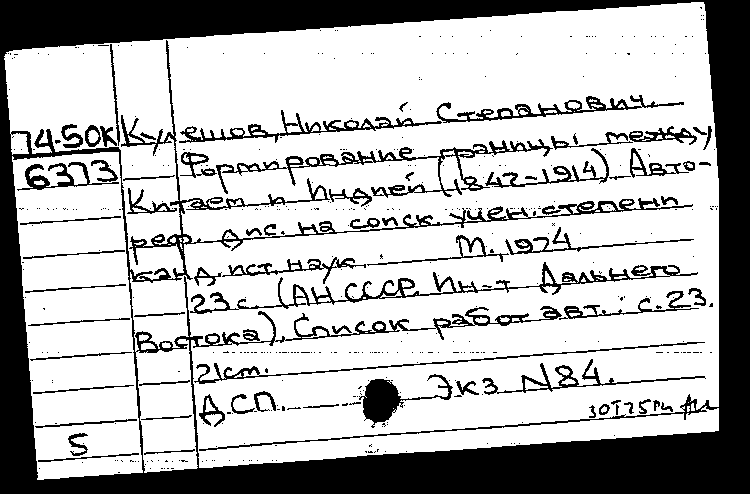 74-50К Кулешов, Николай Степанович.
6373 Формирование границы между
Китаем и Индией (1842-1914). Авто-
реф. дис. на соиск. учен. степени
канд. ист. наук. М., 1974.
23 с. (АН СССР. Ин-т Дальнего
Востока). Список работ авт.: с. 23.
21 ст.
ДСП. Экз N84.
S